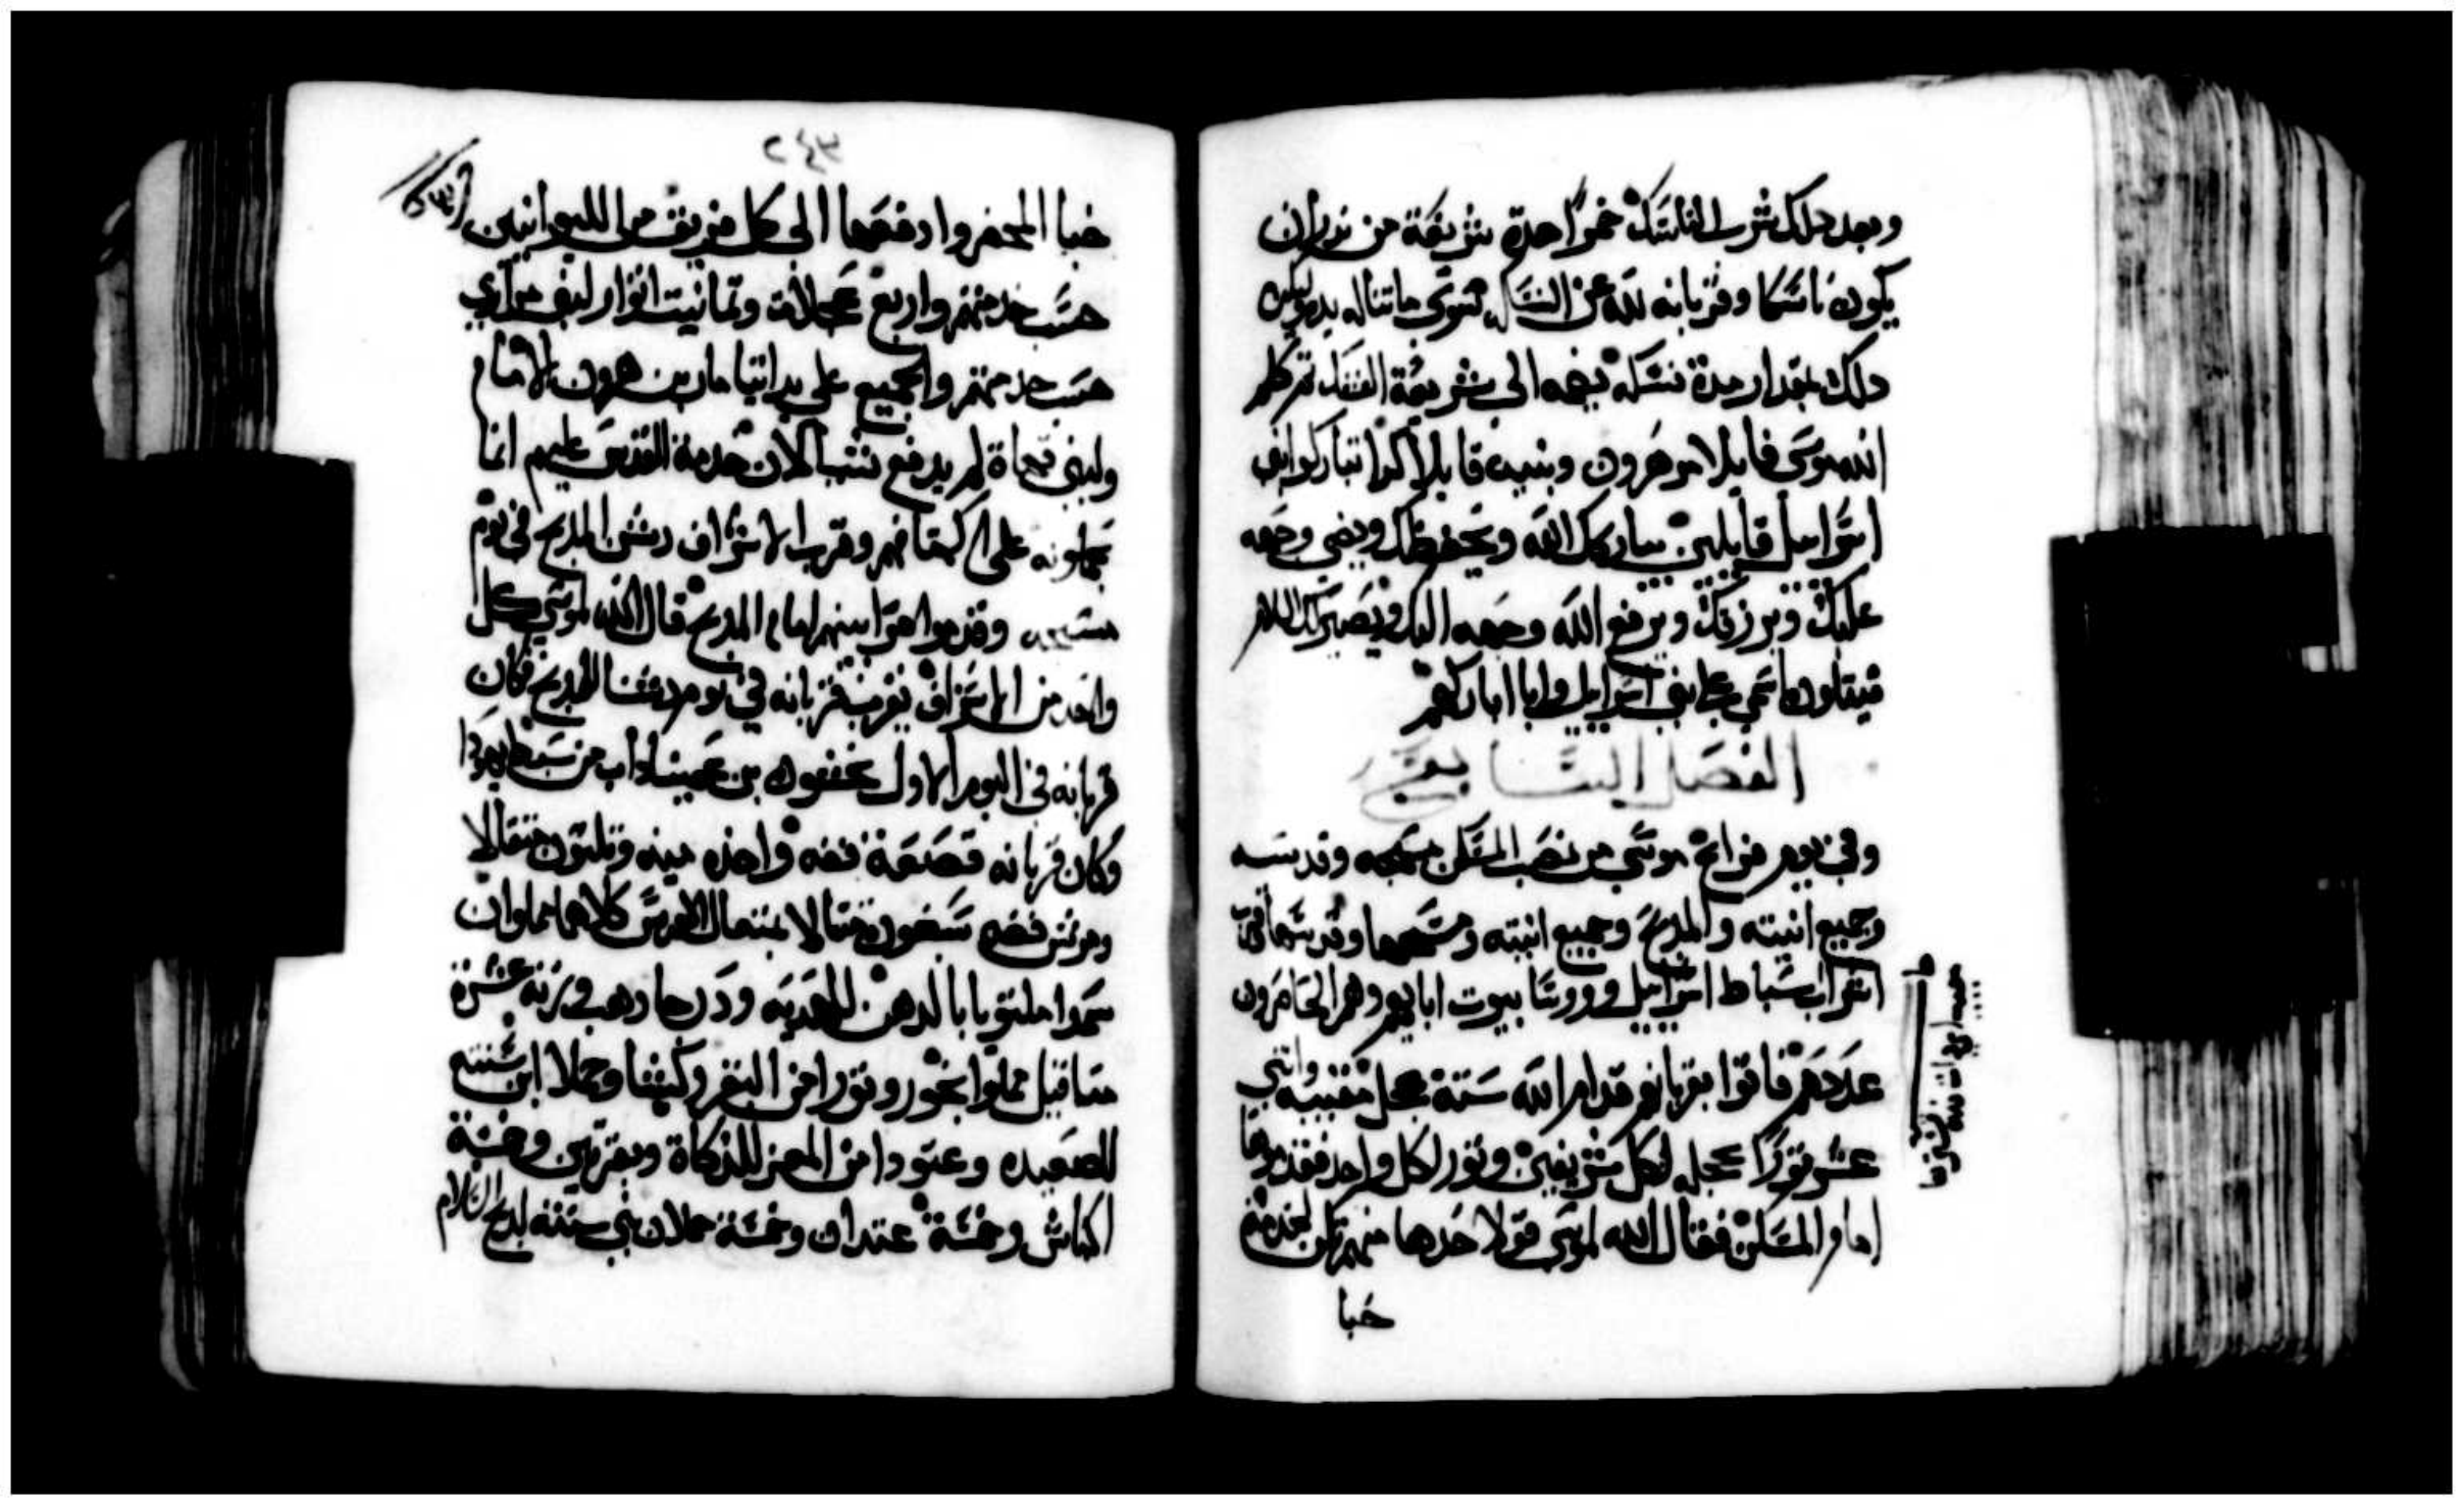 وبعد دلك يشرب الناسك خمرا هدة شريعة من ندر ان
يكون ناسكا وقربانه لله عن النسك سوى ما تناله يده وليكن
دلك بمقدار مدة نسكه يضمه الى شريعة النسك تم كلم
الله موسى قايلا مر هرون وبنيه قايلا كدا تباركوا بني
اسراييل قايلين يباركك الله ويحفظك ويضي وجهه
عليك ويرزقك ويرفع الله وجهه اليك ويصير لك السلام
فيتلون اسمي على بني اسراييل وانا اباركهم
الفصل السابع
وفي يوم فراغ موسى من نصب المسكن مسحه وقدسه
وجميع انيته والمدبح وجميع انيته ومسحها وقدسها
اشراف اسباط اسراييل وروسا بيوت ابايهم وهم الحاضرون
عددهم فاتوا بقربانهم قدام الله ستة عجل مقببه واتني
عشر تورا عجله لكل شريفين وتور لكل واحد فقدموها
امام المسكن فقال الله لموسى قولا خدها منهم تكن لخدمة
خبا
٢٤٣
خبا المحضر وادفعها الى كل فريق من الليوانيين
حسب خدمتهم واربع عجلات وتمانيت اتوار لبني مراري
حسب خدمتهم والجميع على يد ايتامار بن هرون الامام
ولبني قهاة لم يدفع شيا لان خدمة القدس عليهم انما
يحملونه على اكتافهم وقرب الاشراف دشن المدبح في يوم
مسحه وقدموا قرابينهم امام المدبح قال الله لموسى كل
واحد من الاشراف يقرب قربانه في يوم دشنا المدبح فكان
قربانه في اليوم الاول نحشون بن عميناداب من سبط يهودا
وكان قربانه قصعة فضه واحده ميه وتلتون متقالا
ومرش فضه سبعون متقالا بمتقال القدس كلاهما مملوان
سميدا ملتوتا بالدهن للهديه ودرجا دهب وزنه عشرة
متاقيل مملوا بخور وتورا من البقر وكبشا وحملا ابن سنته
للصعيده وعتودا من المعز للذكاة وبقرتين وخمسة
اكباش وخمسة عتدان وخمسة حملان بني سنته لدبح السلام